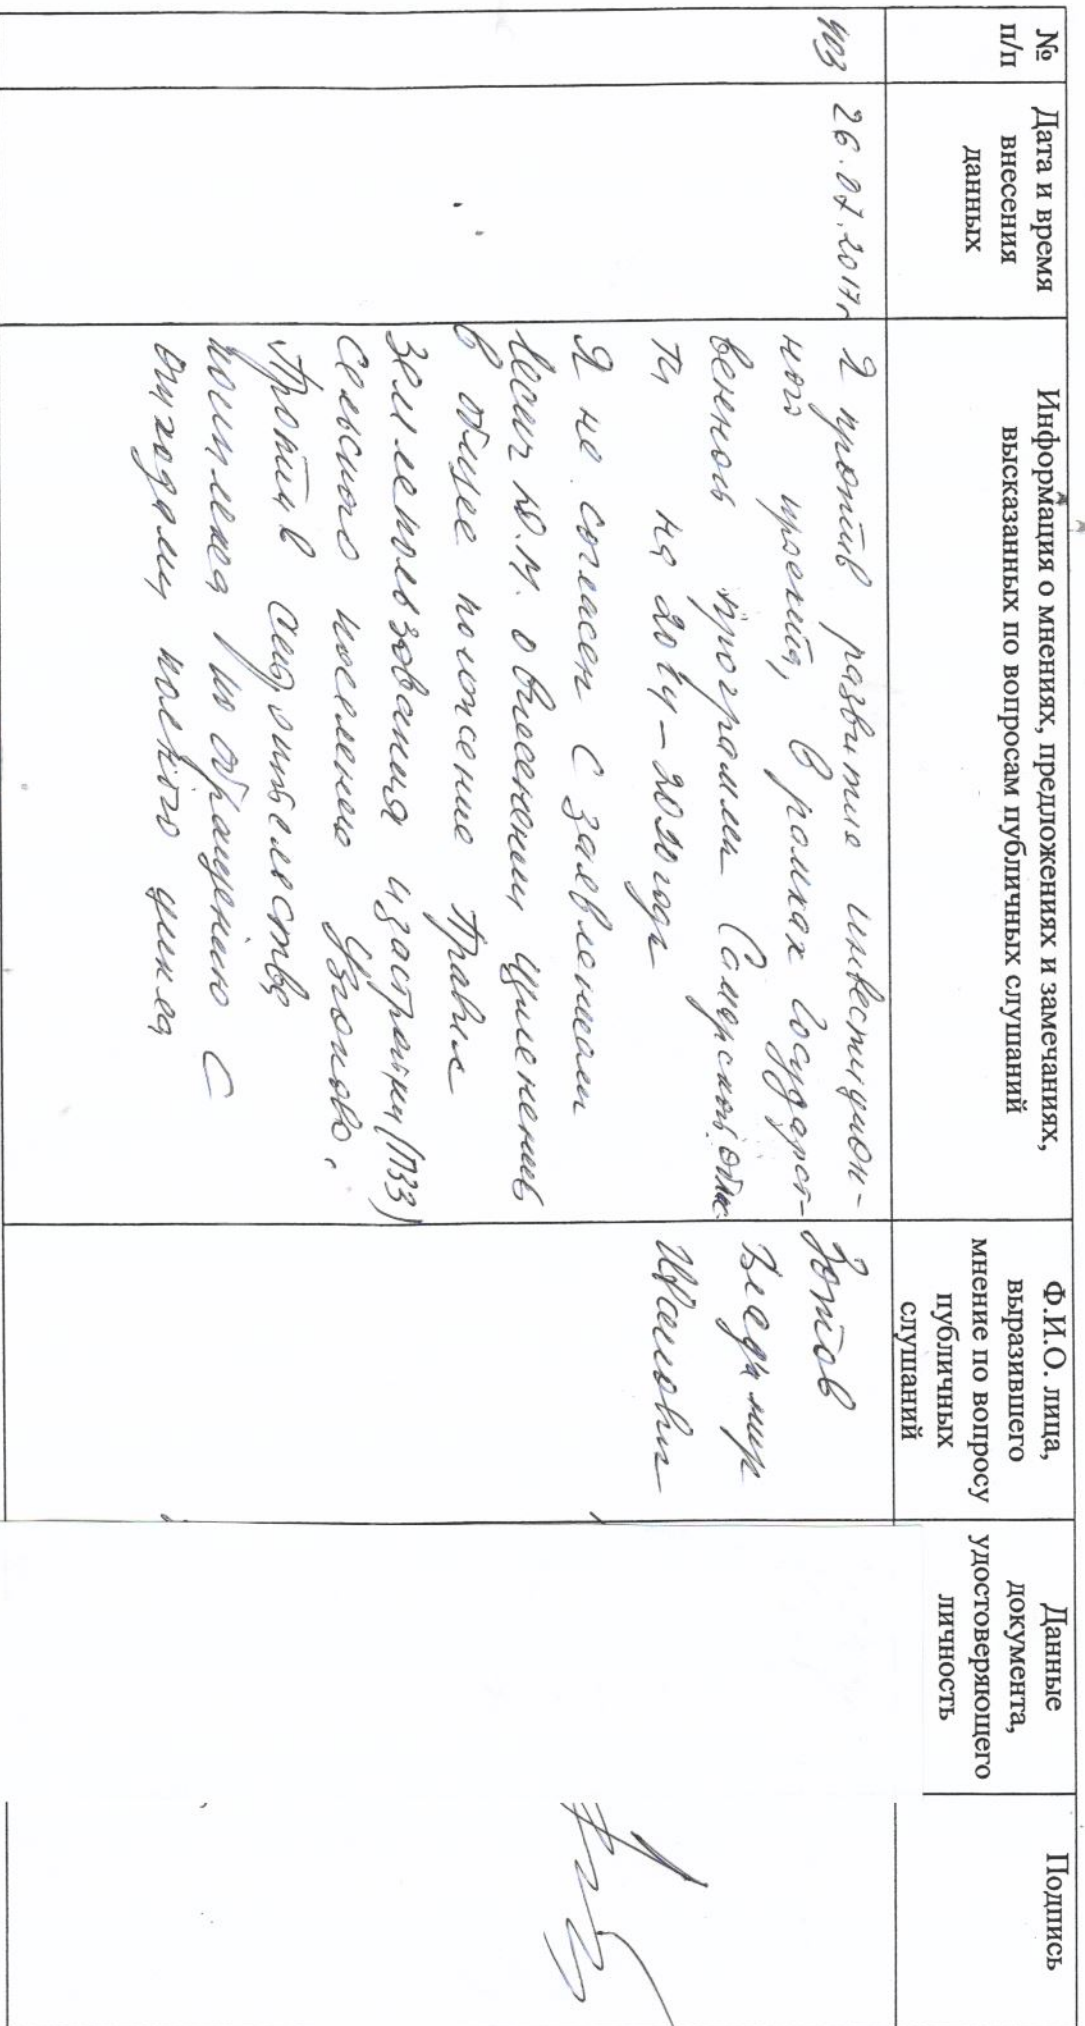 №
п/п
Дата и время
внесения
данных
Информация о мнениях, предложениях и замечаниях,
высказанных по вопросам публичных слушаний
Ф.И.О. лица,
выразившего
мнение по вопросу
публичных
слушаний
Данные
документа,
удостоверяющего
личность
Подпись
403
26.07.2017г
Я против развития инвестицион-
ного проекта, в рамках Государст-
венной программы Самарской облас-
ти на 2014-2020 годы
Я не согласен с заявлением
Ю.М. о внесении изменений
в общее положение Правил
землепользования и застройки (ПЗЗ)
сельского поселения Узюково.
Против строительства
комплекса по обращению с
отходами полного цикла
Зотов
Владимир
Иванович